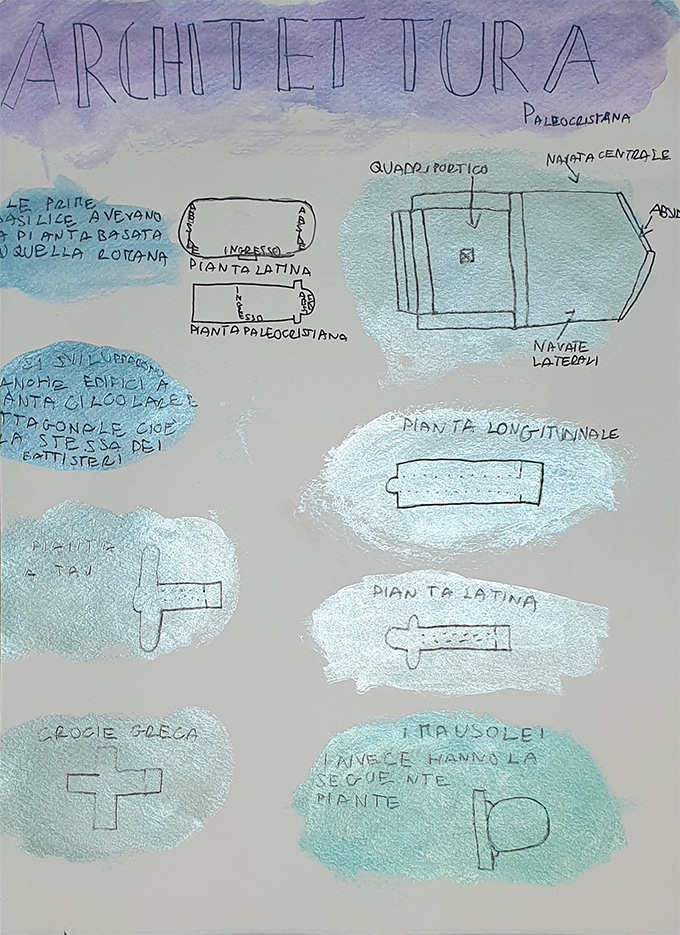 ARCHITETTURA
PALEOCRISTIANA
LE PRIME
BASILICE AVEVANO
A PIANTA BASATA
SU QUELLA ROMANA
ABSIDE
ABSIDE
INGRESSO
PIANTA LATINA
INGRESSO
ABS
PIANTA PALEOCRISTIANA
QUADRIPORTICO
NAVATA CENTRALE
ABSID
NAVATE
LATERALI
SI SVILUPPARONO
ANCHE EDIFICI A
IANTA CILCOLARE E
TTAGONALE CIOÈ
LA STESSA DEI
BATTISTERI
PIANTA LONGITUNNALE
PIANTA
A TAU
PIANTA LATINA
CROCIE GRECA
I MAUSOLEI
INVECE HANNO LA
SEGUENTE
PIANTE